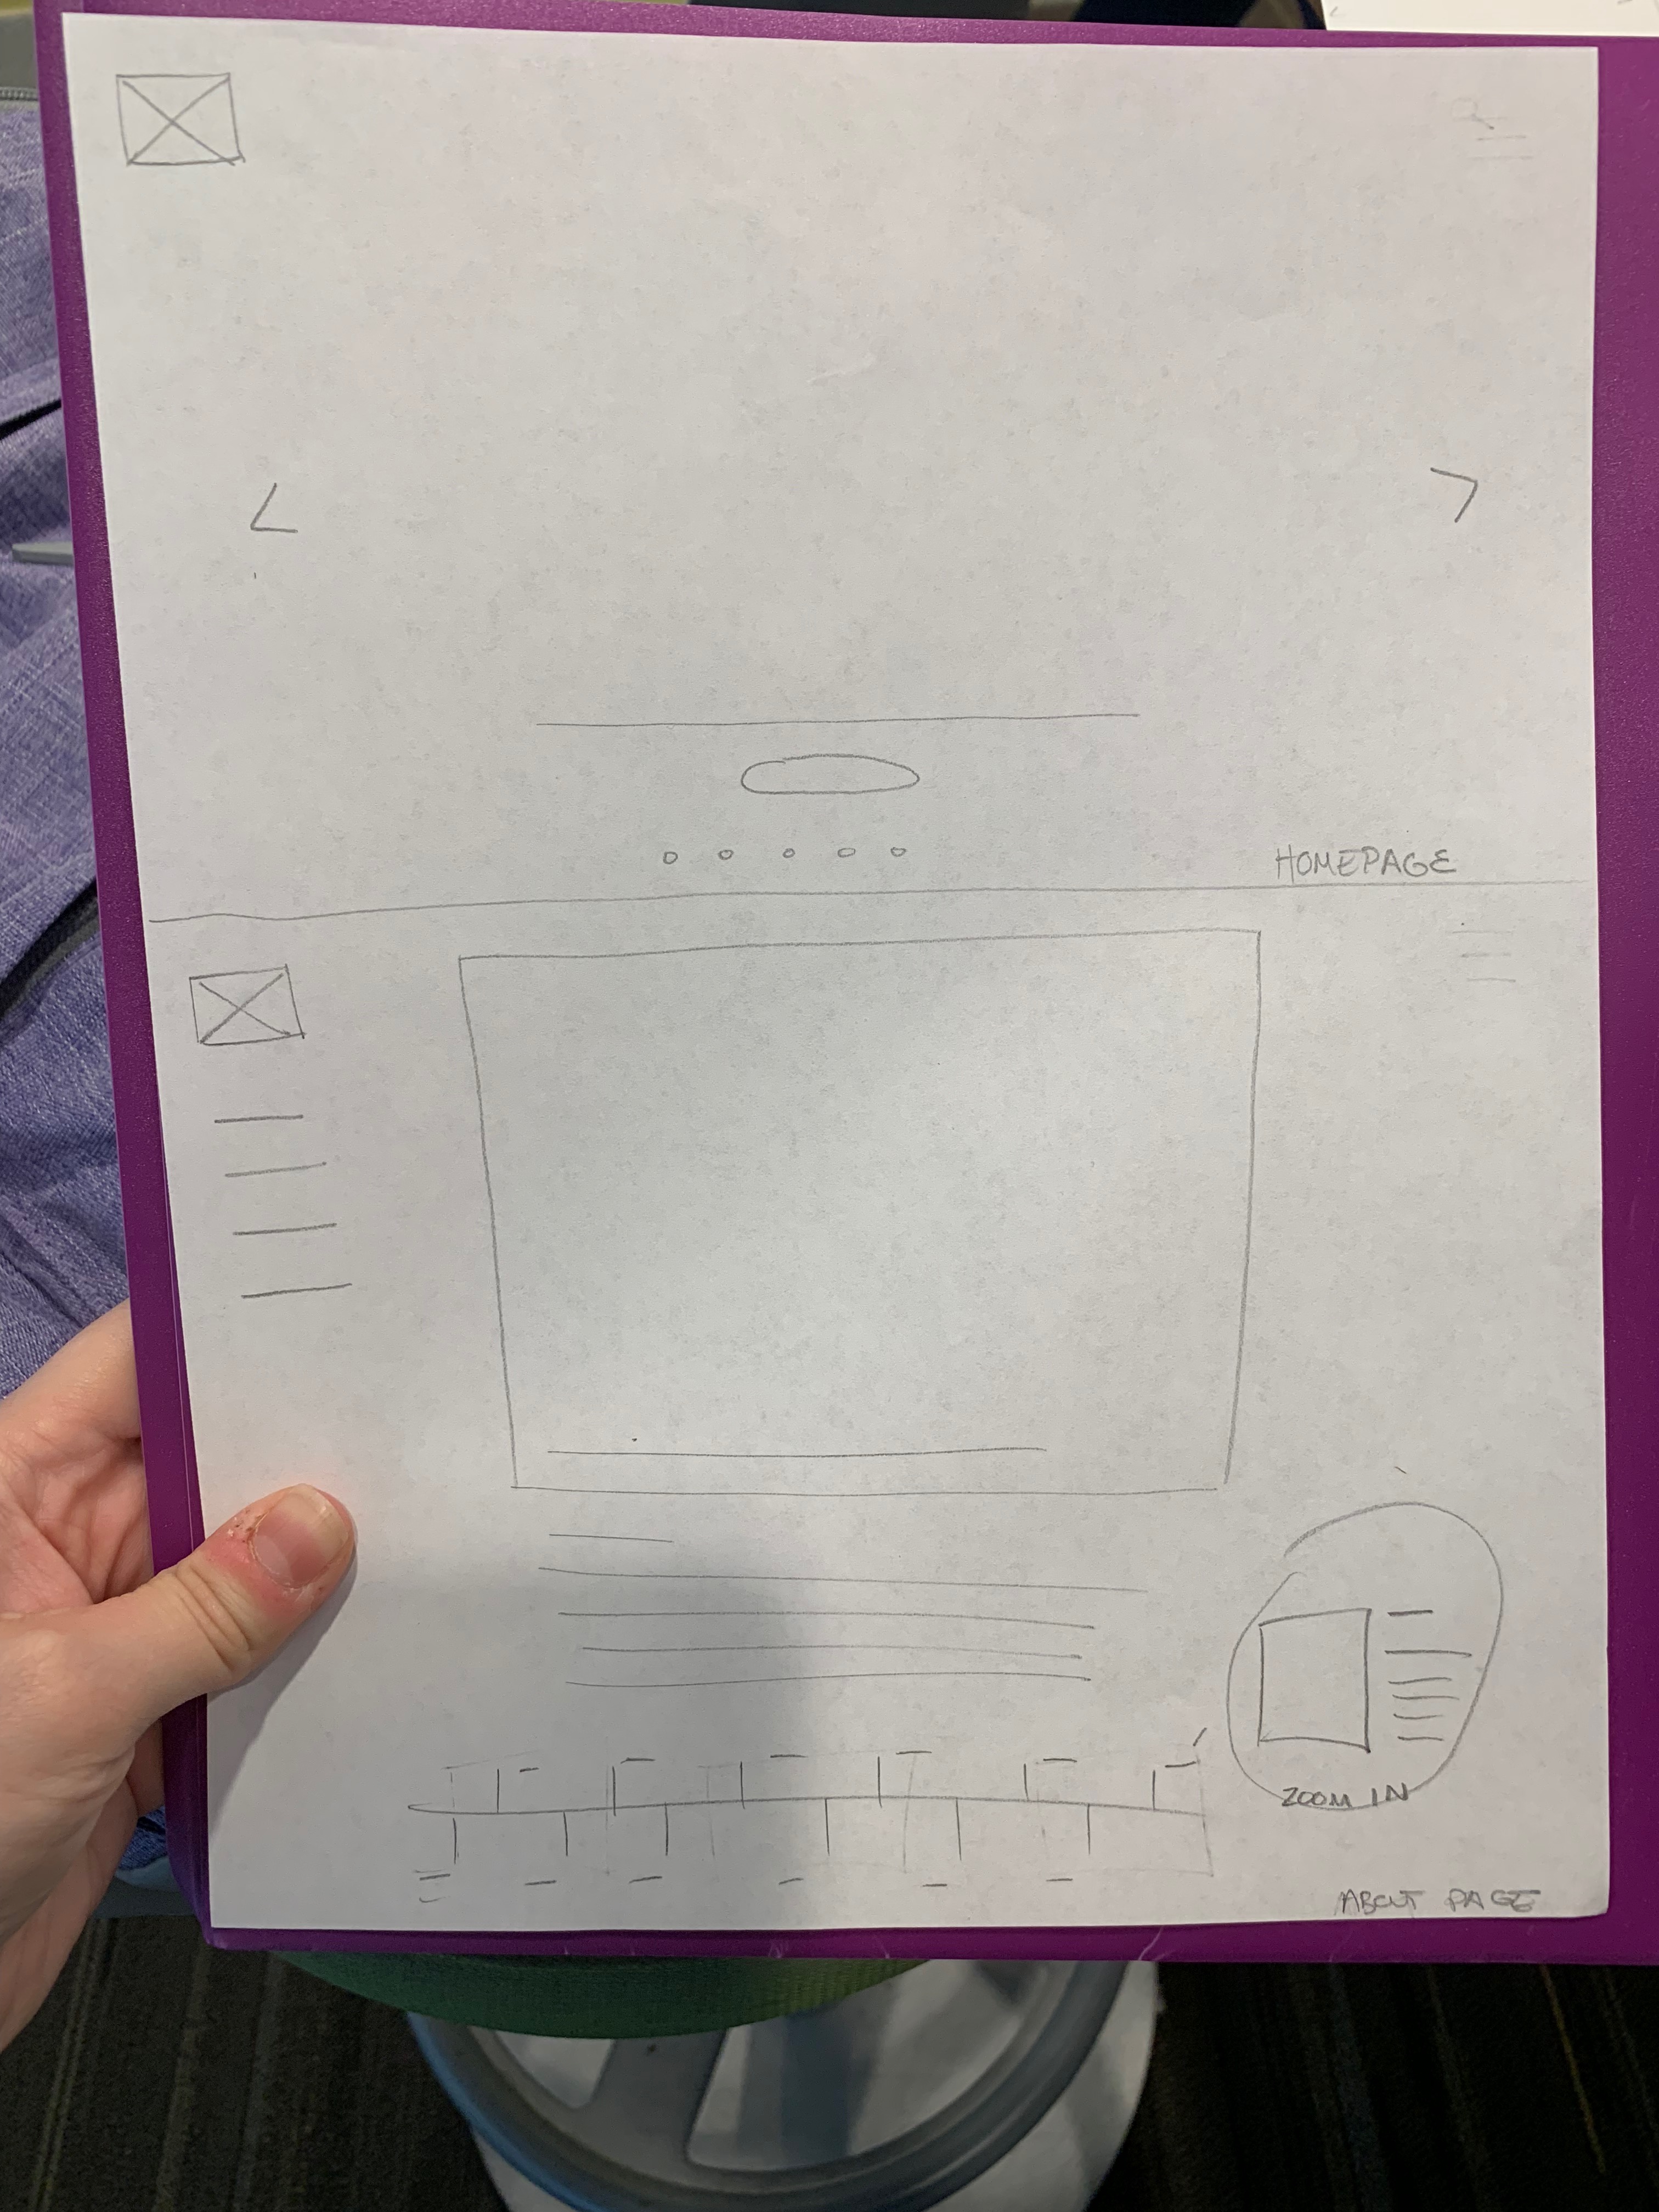 HOMEPAGE
ZOOM IN
ABOUT PAGE